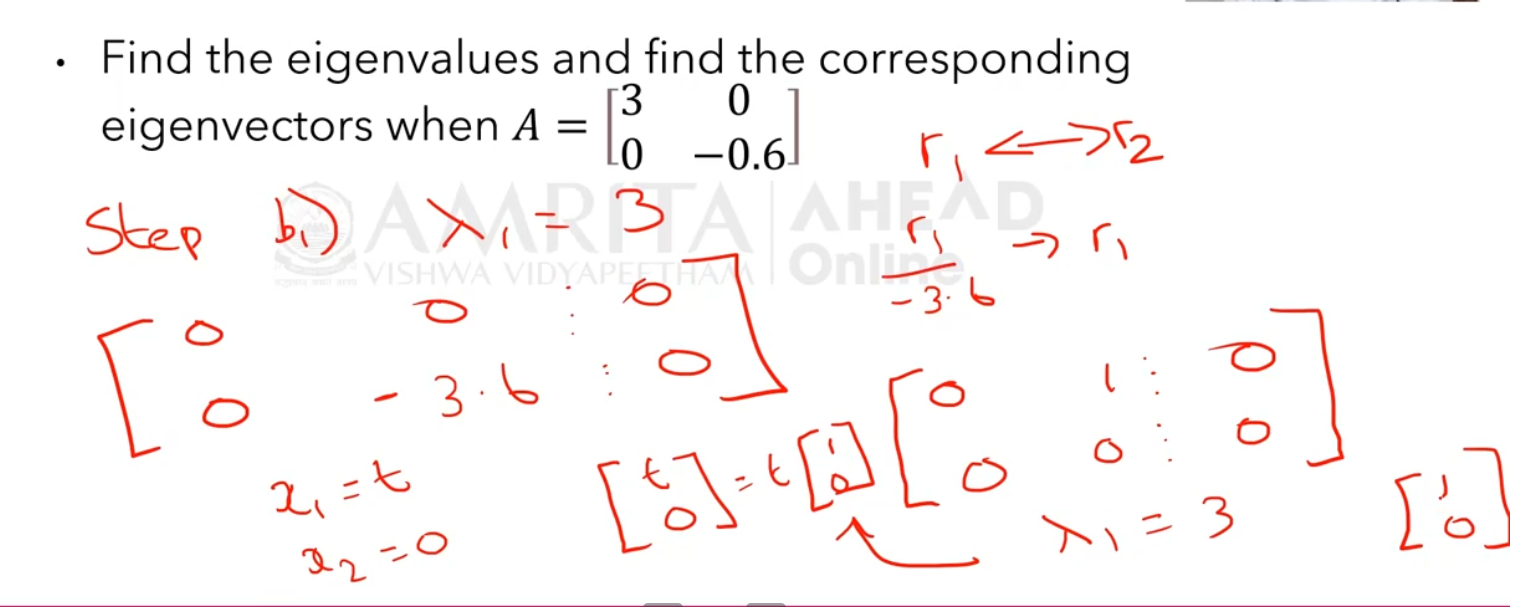 • Find the eigenvalues and find the corresponding
eigenvectors when A = [3 0
0 −0.6]
r₁ ↔ r₂
AMRITA | AHEAD
VISHWA VIDYAPEETHAM | Online
Step b₁) λ₁ = 3
r₁/-3.6 → r₁
[0 0 ⋮ 0
0 -3.6 ⋮ 0]
[0 1 ⋮ 0
0 0 ⋮ 0]
x₁ = t
x₂ = 0
[t
0] = t [1
0]
λ₁ = 3 [1
0]